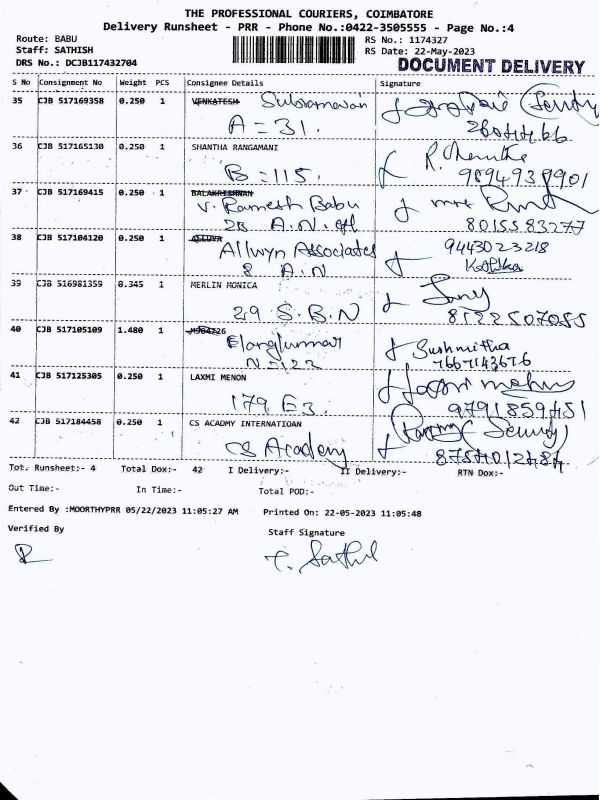 THE PROFESSIONAL COURIERS, COIMBATORE
Delivery Runsheet - PRR - Phone No.:0422-3505555 - Page No.:4
Route: BABU RS No.: 1174327
Staff: SATHISH RS Date: 22-May-2023
DRS No.: DCJB117432704 DOCUMENT DELIVERY
S No Consignment No Weight PCS Consignee Details Signature
35 CJB 517169358 0.250 1 VENKATESH Subramanian
A = 31.
36 CJB 517165130 0.250 1 SHANTHA RANGAMANI
B = 115. 9894938901
37 CJB 517169415 0.250 1 BALAKRISHNAN
V. Ramesh Babu
2B A.N. 8015583277
38 CJB 517104120 0.250 1 Allwyn Associates 9443023218
8 A.N
39 CJB 516981359 0.345 1 MERLIN MONICA
29 S.B.N 8122507055
40 CJB 517105109 1.480 1
Sushmitha
N=122 7667143676
41 CJB 517125305 0.250 1 LAXMI MENON
179 E3. 9791859451
42 CJB 517184458 0.250 1 CS ACADMY INTERNATIOAN
CS Academy
Tot. Runsheet:- 4 Total Dox:- 42 I Delivery:- II Delivery:- RTN Dox:-
Out Time:- In Time:- Total POD:-
Entered By :MOORTHYPRR 05/22/2023 11:05:27 AM Printed On: 22-05-2023 11:05:48
Verified By Staff Signature